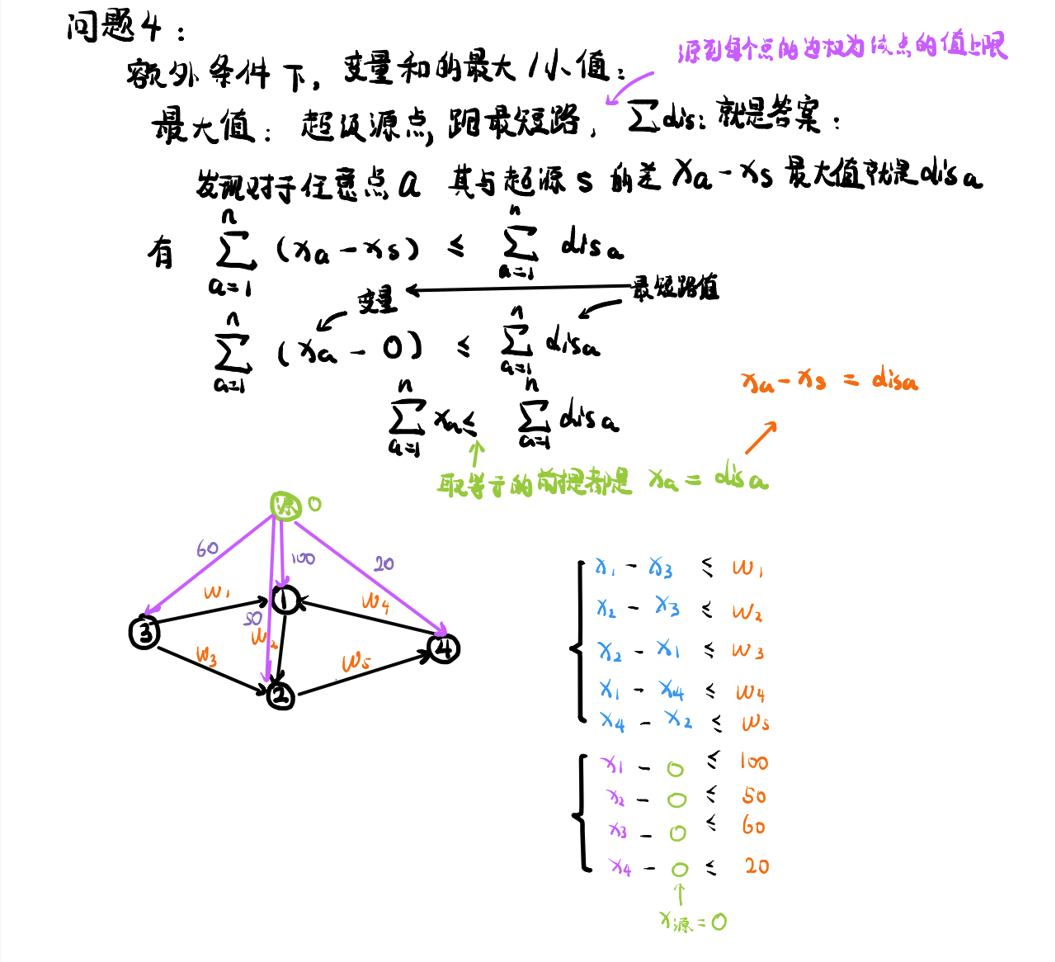 问题4：
额外条件下，变量和的最大/小值：
源到每个点的边权为该点的值上限
最大值：超级源点，跑最短路，∑disᵢ 就是答案：
发现对于任意点 a 其与超源 s 的差 xₐ - xₛ 最大值就是 disₐ
有 ∑_{a=1}^{n} (xₐ - xₛ) ≤ ∑_{a=1}^{n} disₐ
变量 最短路值
∑_{a=1}^{n} (xₐ - 0) ≤ ∑_{a=1}^{n} disₐ
xₐ - xₛ = disₐ
∑_{a=1}^{n} xₐ ≤ ∑_{a=1}^{n} disₐ
取等于的前提都是 xₐ = disₐ
源 0
60 100 20
w₁ 1 w₄
3 50 w₂ 4
w₃ w₅
2
x₁ - x₃ ≤ w₁
x₂ - x₃ ≤ w₂
x₂ - x₁ ≤ w₃
x₁ - x₄ ≤ w₄
x₄ - x₂ ≤ w₅
x₁ - 0 ≤ 100
x₂ - 0 ≤ 50
x₃ - 0 ≤ 60
x₄ - 0 ≤ 20
x源 = 0